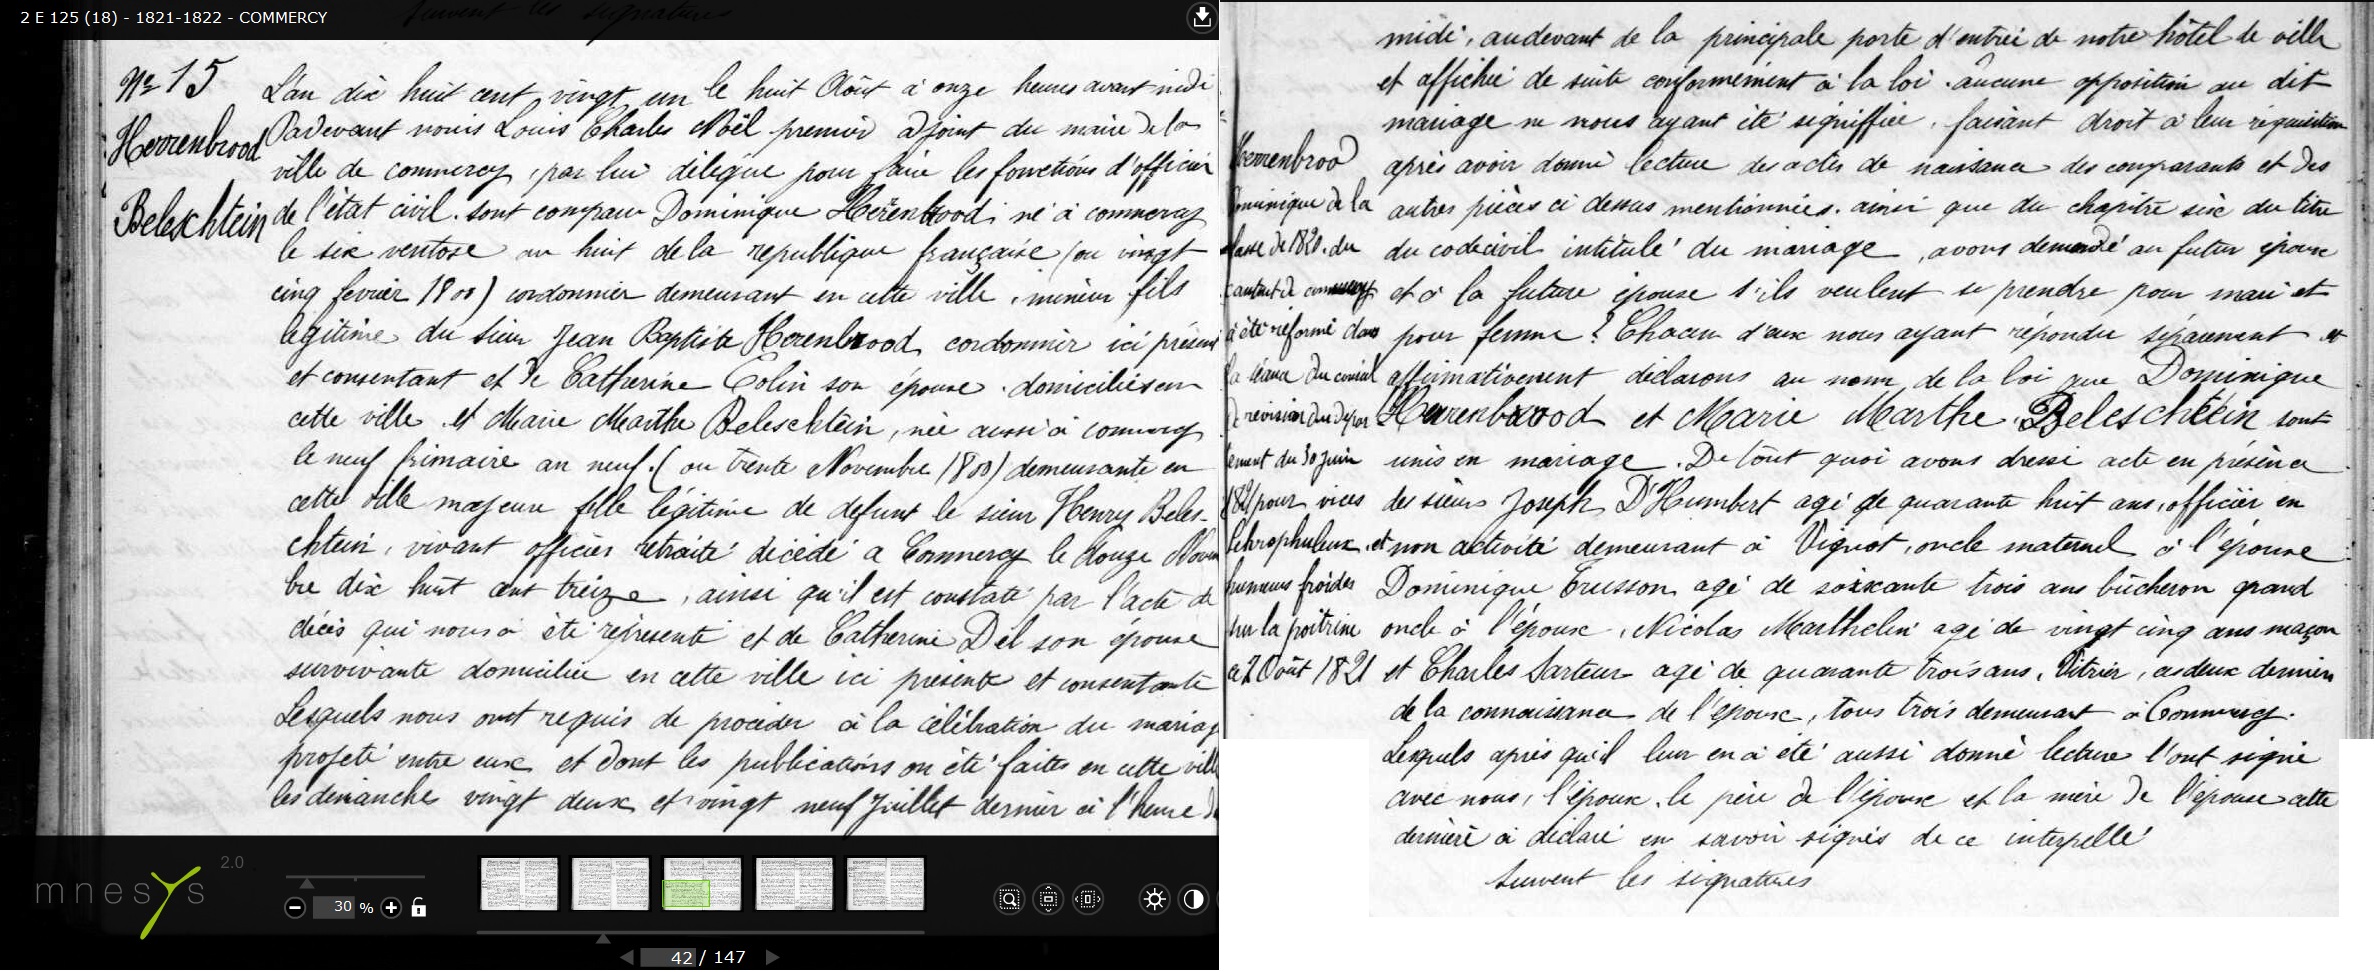 2 E 125 (18) - 1821-1822 - COMMERCY
suivent les signatures
No 15
Herrenbrood
Beleschtein
L'an dix huit cent vingt un le huit Août à onze heures avant midi
Padevant nous Louis Charles Noël premier adjoint du maire de la
ville de commercy, par lui délégué pour faire les fonctions d'officier
de l'état civil. sont comparu Dominique Herenbrood, né à commercy
le six ventose an huit de la republique française (ou vingt
cinq fevrier 1800) cordonnier demeurant en cette ville, mineur fils
légitime du sieur Jean Baptiste Herenbrood, cordonnier ici présent
et consentant et de Catherine Colin son épouse. domiciliés en
cette ville et Marie Marthe Beleschtein, née aussi à commercy
le neuf frimaire an neuf. (ou trente Novembre 1800) demeurante en
cette ville majeure fille légitime de defunt le sieur Henry Beles-
chtein, vivant officier retraité décédé a Commercy le douze Novem
bre dix huit cent treize, ainsi qu'il est constaté par l'acte de
décès qui nous a été représenté et de Catherine Del son épouse
survivante domiciliée en cette ville ici présente et consentante
Lesquels nous ont requis de procéder à la célébration du mariage
projeté entre eux et dont les publications on été faites en cette ville
les dimanche vingt deux et vingt neuf Juillet dernier à l'heure de
midi, audevant de la principale porte d'entrée de notre hôtel de ville
et affichée de suite conformément à la loi. aucune opposition au dit
mariage ne nous ayant été signiffiée, faisant droit à leur réquisition
après avoir donné lecture des actes de naissance des comparants et des
autres pièces ci dessus mentionnées. ainsi que du chapitre six du titre
du code civil intitulé du mariage, avons demandé au futur époux
et à la future épouse s'ils veulent se prendre pour mari et
pour femme? Chacun d'eux nous ayant répondu séparement et
affirmativement déclarons au nom de la loi que Dominique
Herrenbrood et Marie Marthe Beleschtein sont
unis en mariage. De tout quoi avons dressé acte en présence
des sieurs Joseph D'Humbert agé de quarante huit ans, officier en
non activité demeurant à Vignot, oncle maternel à l'épouse
Dominique Trusson agé de soixante trois ans bûcheron grand
oncle à l'époux, Nicolas Marthelin agé de vingt cinq ans maçon
et Charles Sarteur agé de quarante trois ans, Vitrier, ces deux derniers
de la connaissance de l'époux, tous trois demeurant à Commercy.
Lesquels après qu'il leur en a été aussi donné lecture l'ont signé
avec nous, l'époux. le père de l'époux et la mère de l'épouse cette
dernière a déclaré en savoir signés de ce interpellé
suivent les signatures
Herrenbrood
Dominique de la
classe de 1820. du
canton de commercy
a été réformé dans
la séance du conseil
de révision du dépar
tement du 30 Juin
1821 pour vices
Schrophuleux, et
humeurs froides
sur la poitrine
ce 7 Août 1821
mnesys 2.0
30 %
42 / 147